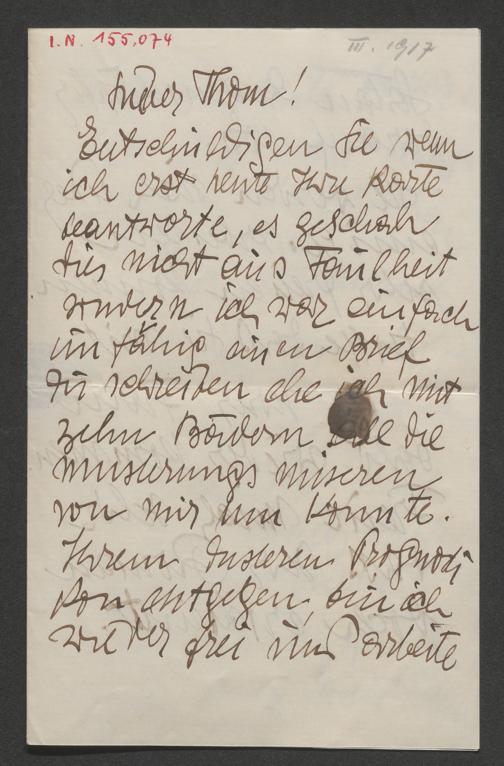 I.N. 155.074
III. 1917
Lieber Thom!
Entschuldigen Sie wenn
ich erst heute Ihre Karte
beantworte, es geschah
dies nicht aus Faulheit
sondern ich war einfach
unfähig einen Brief
zu schreiben ehe ich mit
zehn Bädern alle die
musterungs miseren
von mir tun konnte.
Ihrem düsteren Prognosti
kon entgegen, bin ich
wieder frei und arbeite